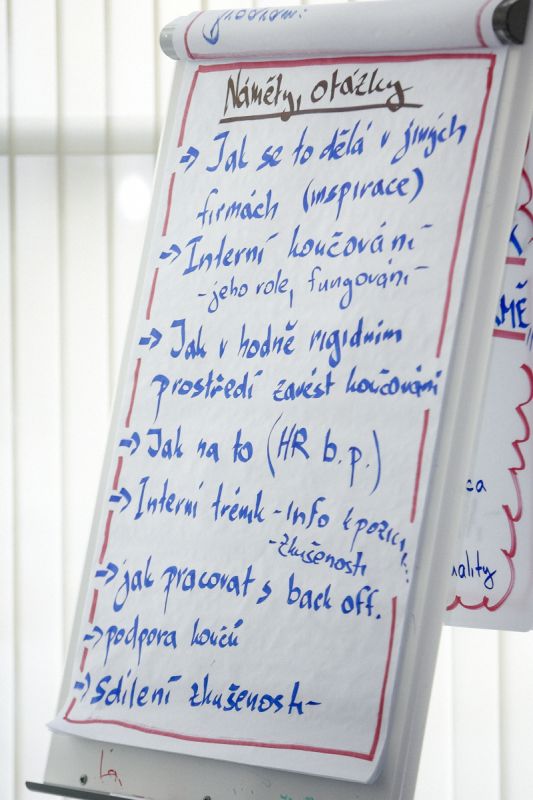 Náměty, otázky
→ Jak se to dělá v jiných
firmách (inspirace)
→ Interní koučování
- jeho role, fungování
→ Jak v hodně rigidním
prostředí zavést koučování
→ Jak na to (HR b.p.)
→ Interní trénik - info k pozici
- zkušenosti
→ jak pracovat s back off.
→ podpora koučů
→ Sdílení zkušeností